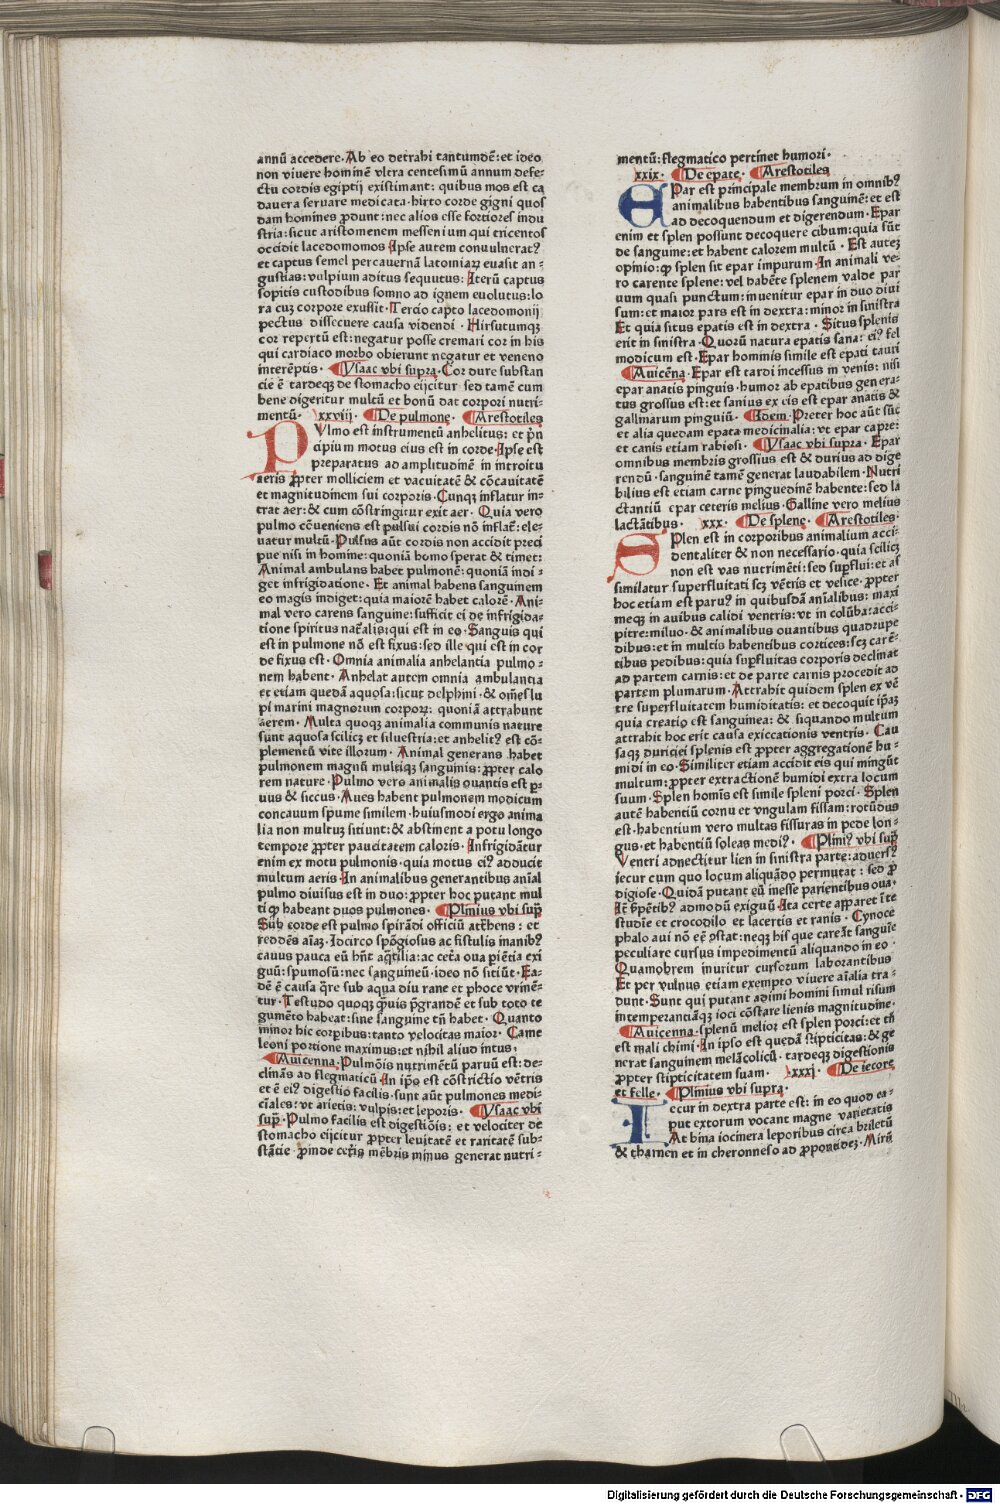 annū accedere·Ab eo detrahi tantumdē:et ideo
non viuere hominē vltra centesimū annum defe-
ctu cordis egiptij existimant: quibus mos est ca
dauera seruare medicata·hirto corde gigni quos
dam homines ꝓdunt:nec alios esse fortiores indu
stria:sicut aristomenem messenium qui tricentos
occidit lacedomomos Ipse autem conuulneratꝰ
et captus semel per cauernā latomiaꝝ euasit an-
gustias:vulpium aditus sequutus: Iterū captus
sopitis custodibus somno ad ignem euolutus:lo
ra cuꝫ corpore exussit·Tercio capto lacedomonij
pectus dissecuere causa videndi·Hirsutumqꝫ
cor repertū est:negatur posse cremari cor in his
qui cardiaco morbo obierunt negatur et veneno
interēptis· Ysaac vbi supra·Cor dure substan
cie ē tardeqꝫ de stomacho eijcitur sed tamē cum
bene digeritur multū et bonū dat corpori nutri-
mentū· xxviij· De pulmone· Arestotiles
PVlmo est instrumentū anhelitus: et p̄n
cipium motus eius est in corde·Ipse est
preparatus ad amplitudinē in introitu
aeris ꝓpter molliciem et vacuitatē & cōcauitatē
et magnitudinem sui corporis·Cunqꝫ inflatur in-
trat aer:& cum cōstringitur exit aer·Quia vero
pulmo cōueniens est pulsui cordis nō inflat̄:ele-
uatur multū·Pulsus aūt cordis non accidit preci
pue nisi in homine:quoniā homo sperat & timet:
Animal ambulans habet pulmonē:quoniā indi-
get infrigidatione·Et animal habens sanguinem
eo magis indiget:quia maiorē habet calorē·Ani-
mal vero carens sanguine:sufficit ei de infrigida-
tione spiritus nat̄alis:qui est in eo·Sanguis qui
est in pulmone nō est fixus:sed ille qui est in cor
de fixus est·Omnia animalia anhelantia pulmo-
nem habent·Anhelat autem omnia ambulantia
et etiam quedā aquosa:sicut delphini·& om̄es lu
pi marini magnorum corporꝝ: quoniā attrahunt
aerem·Multa quoqꝫ animalia communis nature
sunt aquosa scilicꝫ et siluestria:et anhelitꝰ est cō-
plementū vite illorum·Animal generans habet
pulmonem magnū multiqꝫ sanguinis: ꝓpter calo
rem nature·Pulmo vero animalis ouantis est ꝑ-
uus & siccus·Aues habent pulmonem modicum
concauum spume similem·huiusmodi ergo anima
lia non multuꝫ sitiunt:& abstinent a potu longo
tempore ꝓpter paucitatem caloris·Infrigidātur
enim ex motu pulmonis·quia motus eiꝰ adducit
multum aeris·In animalibus generantibus anīal
pulmo diuisus est in duo:ꝓpter hoc putant mul
ti ꝙ habeant duos pulmones· Plinius vbi sup̄
Sub corde est pulmo spirādi officiū att̄hens: et
reddēs aīaꝫ·Idcirco spōgiosus ac fistulis inanibꝰ
cauus pauca eū hn̄t aq̄tilia:ac cet̄a oua pīentia exi
guū:spumosū:nec sanguineū·ideo nō sitiūt·Ea-
dē ē causa q̄re sub aqua diu rane et phoce vrinē-
tur·Testudo quoqꝫ q̄uis p̄grandē et sub toto te
gumēto habeat:sine sanguine tn̄ habet·Quanto
minor hic corp̄ibus:tanto velocitas maior·Came
leoni portione maximus:et nihil aliud intus·
Auicenna·Pulmōis nutrimētū paruū est: de-
clinās ad flegmaticū·In ip̄o est cōstrictio vētris
et ē eiꝰ digestio facilis·sunt aūt pulmones medi-
ciales:vt arietis:vulpis:et leporis· Ysaac vbi
sup̄·Pulmo facilis est digestiōis: et velociter de
stomacho eijcitur ꝓpter leuitatē et raritatē sub-
stācie·ꝓinde cet̄is mēbris minus generat nutri-
mentū:flegmatico pertinet humori·
xxix· De epate· Arestotiles
EPar est principale membrum in omnibꝰ
animalibus habentibus sanguinē:et est
ad decoquendum et digerendum·Epar
enim et splen possunt decoquere cibum:quia sūt
de sanguine:et habent calorem multū·Est auteꝫ
opinio:ꝙ splen sit epar impurum·In animali ve-
ro carente splene:vel habēte splenem valde par
uum quasi punctum:inuenitur epar in duo diui
sum:et maior pars est in dextra:minor in sinistra
Et quia situs epatis est in dextra·Situs splenis
erit in sinistra·Quorū natura epatis sana: eiꝰ fel
modicum est·Epar hominis simile est epati tauri
Auicēna·Epar est tardi incessus in venis: nisi
epar anatis pinguis·humor ab epatibus genera-
tus grossus est:et sanius ex eis est epar anatis &
gallinarum pinguiū· Idem·Preter hoc aūt sūt
et alia quedam epata medicinalia:vt epar capre:
et canis etiam rabiosi· Ysaac vbi supra·Epar
omnibus membris grossius est & durius ad dige
rendū·sanguinē tamē generat laudabilem·Nutri
bilius est etiam carne pinguedinē habente:sed la
ctantiū epar ceteris melius·Galline vero melius
lactātibus· xxx· De splene· Arestotiles·
SPlen est in corporibus animalium acci-
dentaliter & non necessario·quia scilicꝫ
non est vas nutrimēti:sed suꝑflui:et as
similatur superfluitati scꝫ vētris et vesice·ꝓpter
hoc etiam est paruꝰ in quibusdā anīalibus: maxi
meqꝫ in auibus calidi ventris:vt in colūba:acci-
pitre:miluo·& animalibus ouantibus quadrupe
dibus:et in multis habentibus cortices:scꝫ carē-
tibus pedibus:quia suꝑfluitas corporis declinat
ad partem carnis:et de parte carnis procedit ad
partem plumarum·Attrahit quidem splen ex vē
tre superfluitatem humiditatis: et decoquit ip̄aꝫ
quia creatio est sanguinea: & siquando multum
attrahit hoc erit causa exiccationis ventris·Cau
saqꝫ duriciei splenis est ꝓpter aggregationē hu-
midi in eo·Similiter etiam accidit eis qui mingūt
multum:ꝓpter extractionē humidi extra locum
suum·Splen homīs est simile spleni porci·Splen
autē habentiū cornu et vngulam fissam:rotūdus
est·habentium vero multas fissuras in pede lon-
gus·et habentiū soleas mediꝰ· Pliniꝰ vbi sup̄
Ventri adnectitur lien in sinistra parte:aduersꝰ
iecur cum quo locum aliquādo permutat: sed ꝓ
digiose·Quidā putant eū inesse parientibus oua·
It̄ ſp̄ētibꝰ admodū exiguū·Ita certe apparet ī te
studie et crocodilo et lacertis et ranis·Cynoce
phalo aui nō eē ꝯstat:neqꝫ his que careāt sanguīe
peculiare cursus impedimentū aliquando in eo·
Quamobrem inuritur cursorum laborantibus
Et per vulnus etiam exempto viuere aīalia tra-
dunt·Sunt qui putant adimi homini simul risum
intemperantiāqꝫ ioci cōstare lienis magnitudine·
Auicenna·splenū melior est splen porci:et tn̄
est mali chimi·In ipso est quedā stipticitas:& ge
nerat sanguinem melācolicū·tardeqꝫ digestionis
ꝓpter stipticitatem suam· xxxj· De iecore
et felle· Plinius vbi supra·
Iecur in dextra parte est: in eo quod ca-
put extorum vocant magne varietatis
At bina iocinera leporibus circa briletū
& tharnen et in cheronneso ad ꝓpontideꝫ·Mirū
Digitalisierung gefördert durch die Deutsche Forschungsgemeinschaft · DFG